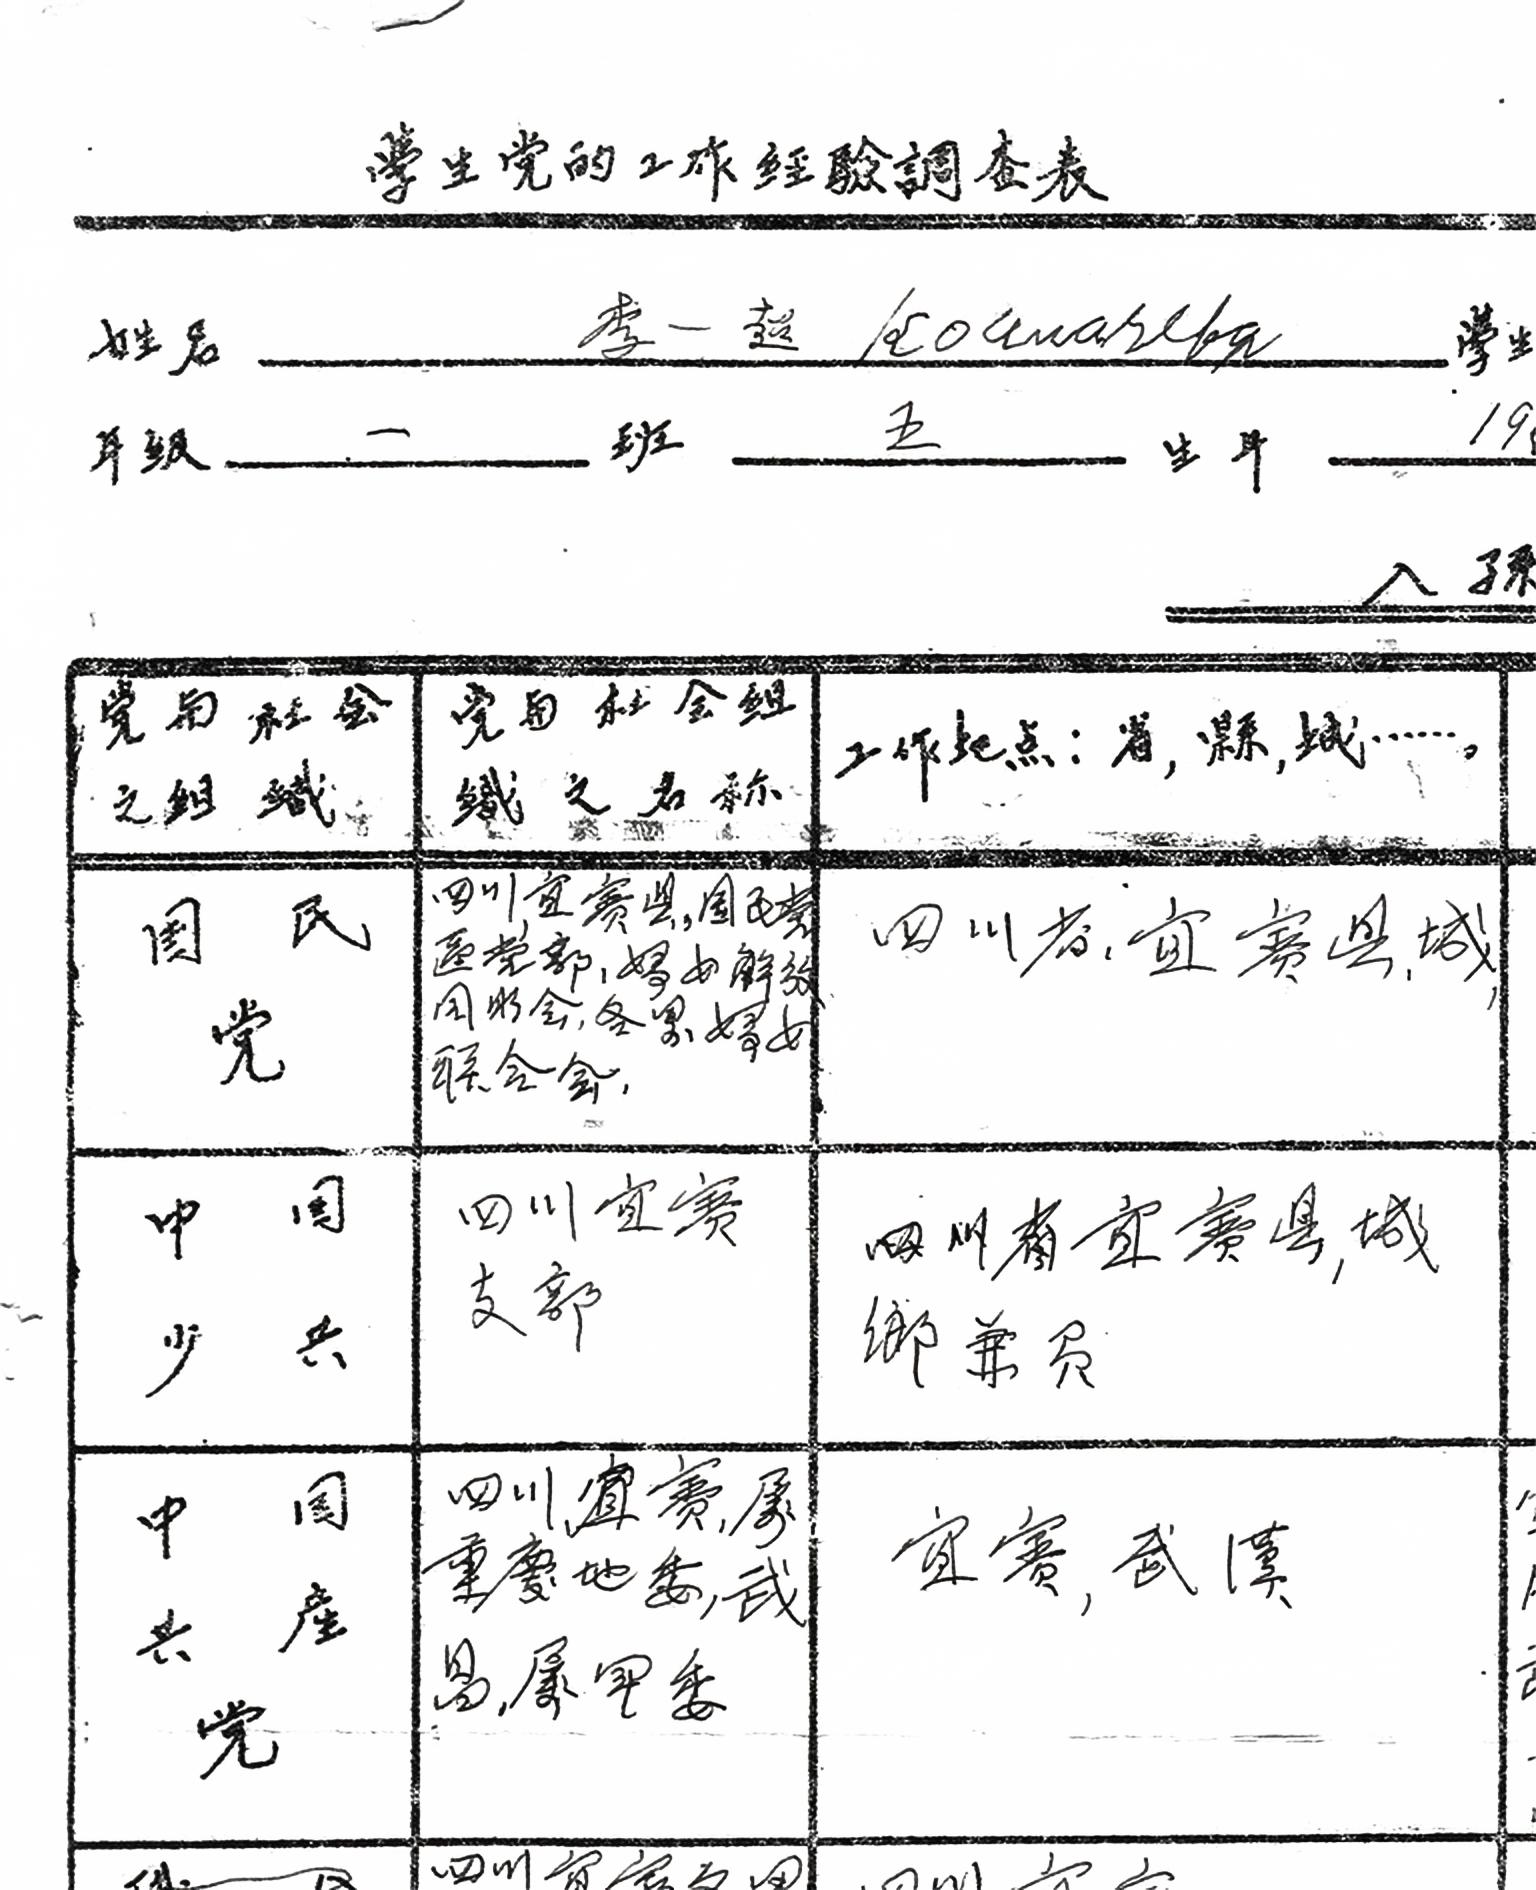 學生党的工作経驗調查表
姓名 李一超 學生
年級 一 班 五 生年 19
入 孫
党与社会之组織
党与社会组織之名称
工作地点：省，縣，城……。
国民党
四川，宜賓县，国民党
區党部，婦女解放
同盟会，各界婦女
联合会，
四川省，宜賓县，城，
中国少共
四川宜賓
支部
四川省宜賓县，城
鄉兼员
中国共産党
四川，宜賓，属
重慶地委，武
昌，属軍委
宜賓，武漢
四川宜賓
四川宜賓